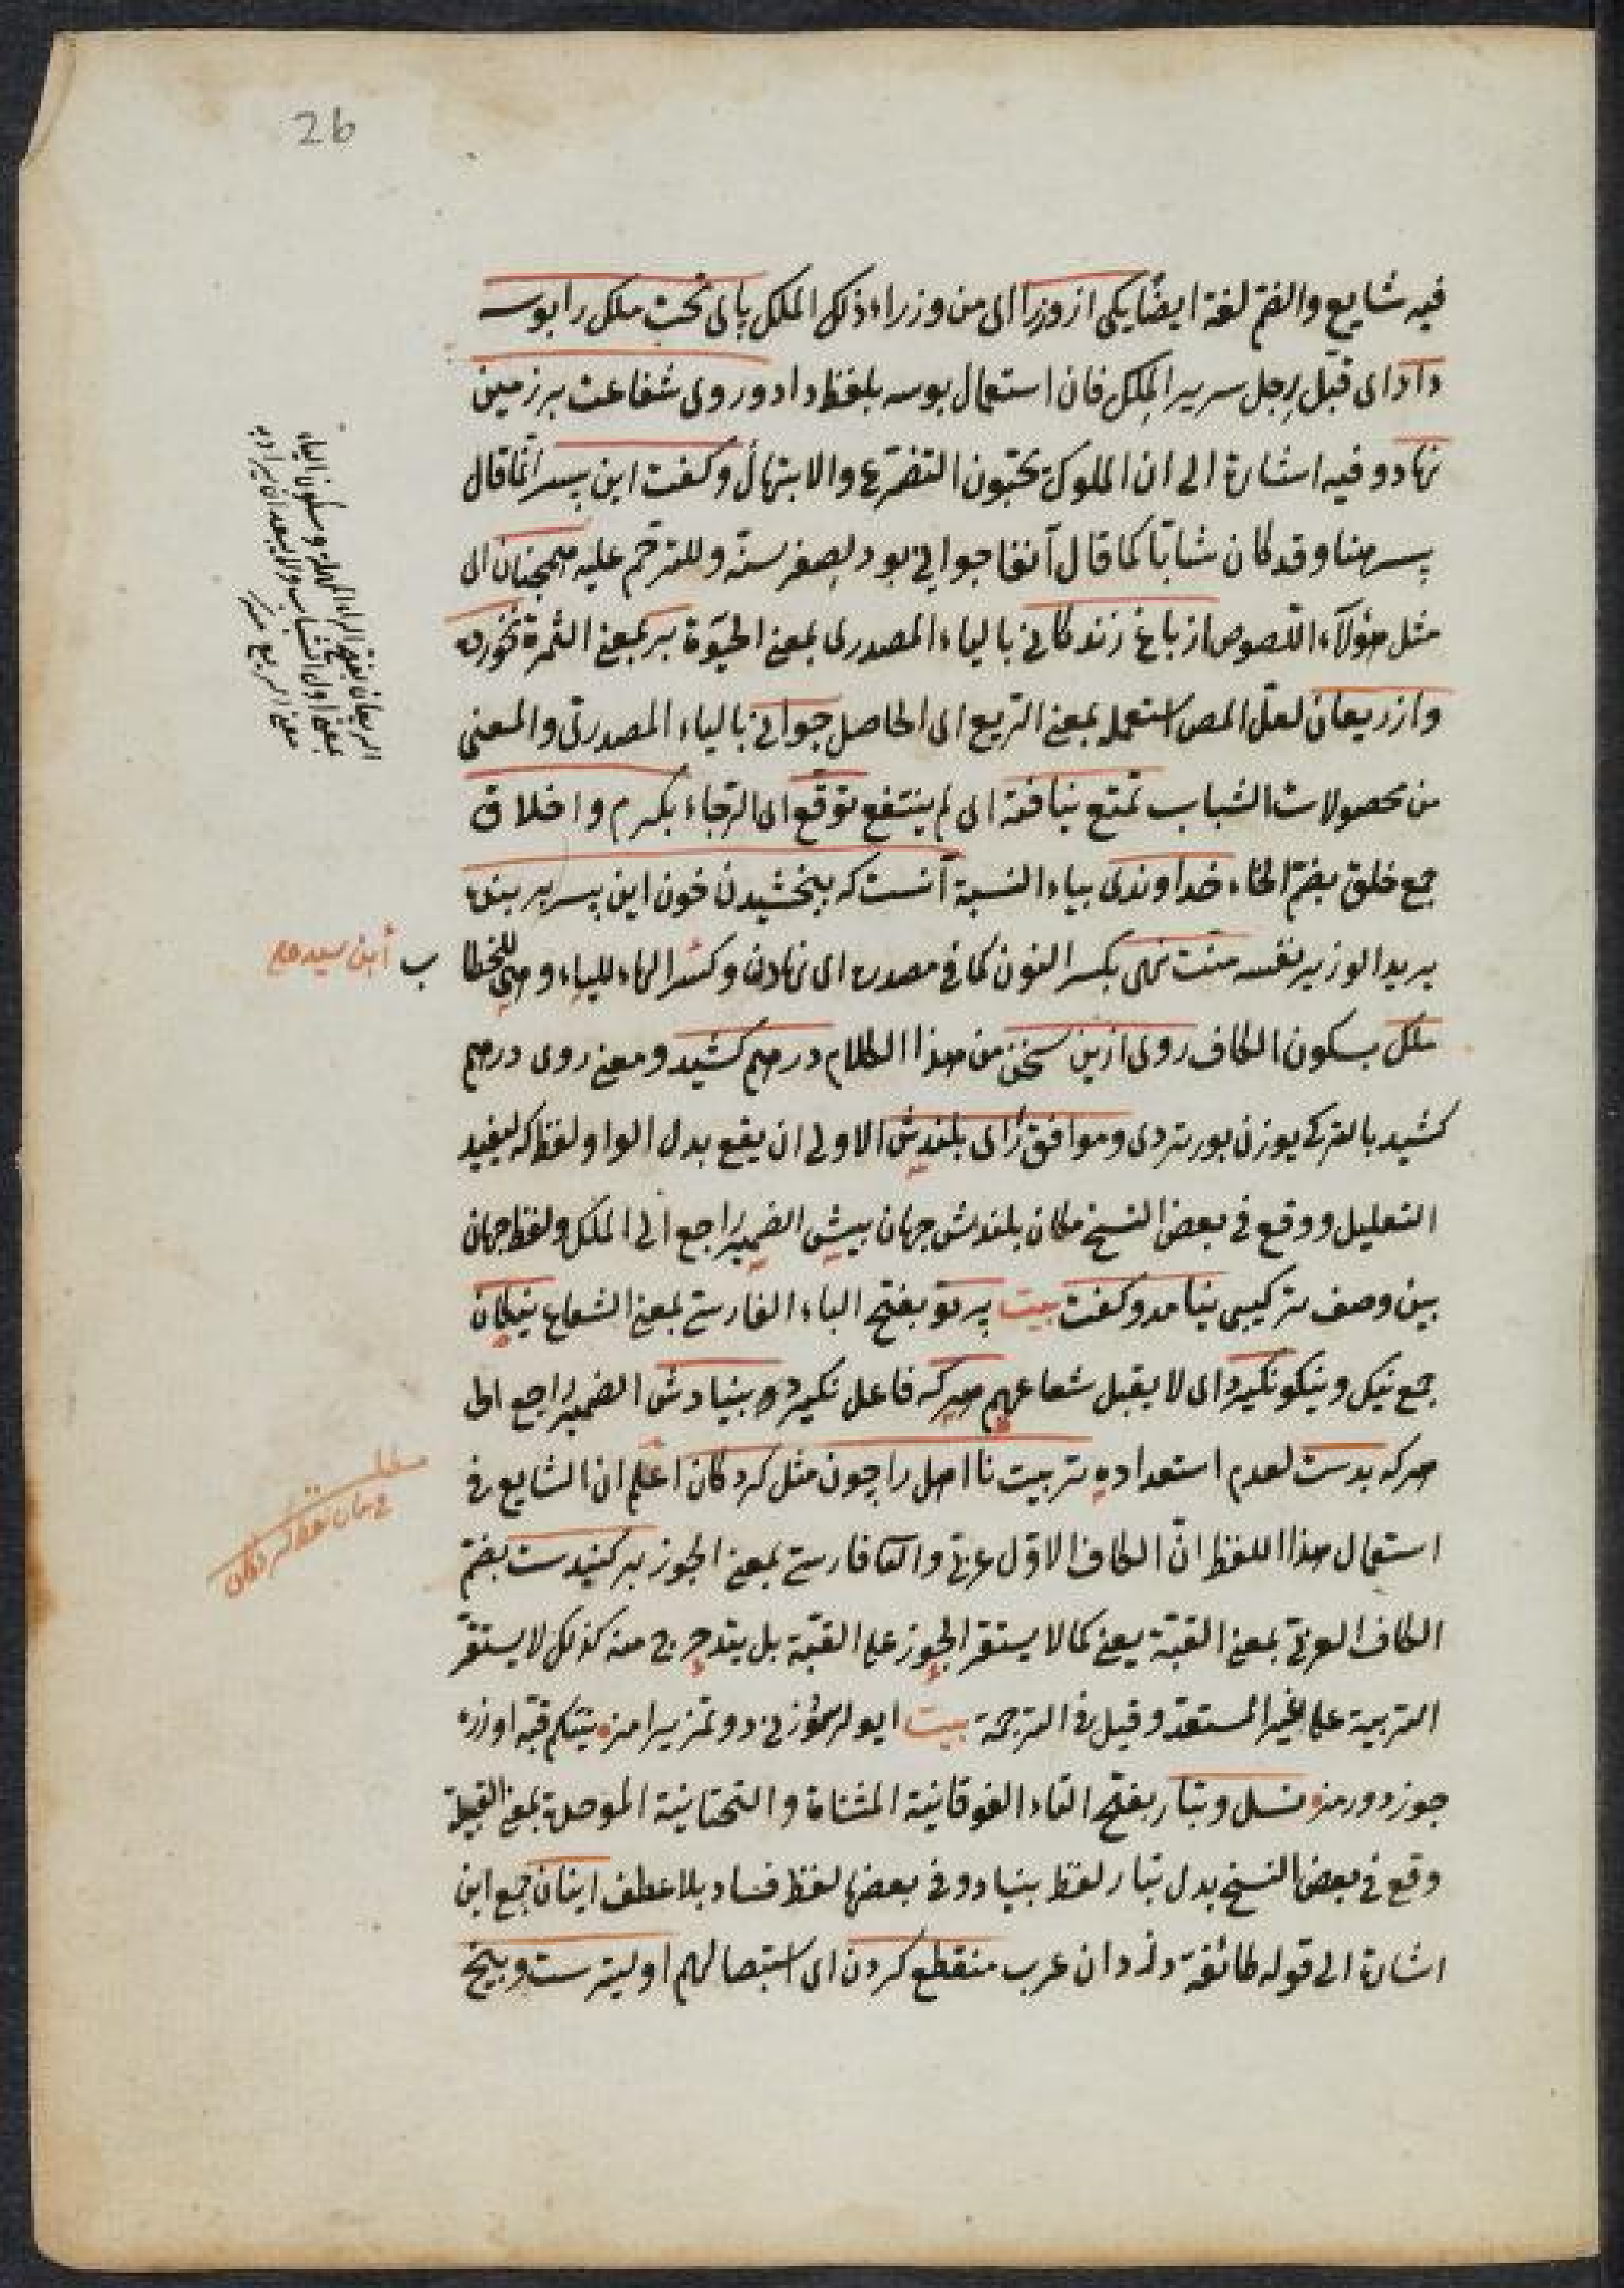 26
فيه شايع والضم لغة ايضا يكى از وزرا اى من وزراء ذلك الملك پاى تخت ملك را بوسه
داد اى قبّل رجل سرير الملك فان استعمال بوسه بلفظ داد وروى شفاعت بر زمين
نهاد وفيه اشارة الى ان الملوك يحبّون التضرّع والابتهال وكفت اين پسر انّما قال
پسر هنا وقد كان شابّا كما قال آنفا جوانى بود لصغر سنّه وللترحّم عليه همچنان اى
مثل هؤلآء اللّصوص از باغ زندكانى بالياء المصدرى بمعنى الحيوة بر بمعنى الثمرة نخورده
واز ريعان لعلّ المص استعمله بمعنى الريع اى الحاصل جوانى بالياء المصدرى والمعنى
من محصولات الشباب تمتع نيافته اى لم ينتفع توقّع اى الرجاء بكرم واخلاق
جمع خلق بضمّ الخاء خداوندى بياء النسبة آنست كه ببخشيدن خون اين پسر بر بنده
يريد الوزير نفسه منّت نهى بكسر النون كما فى مصدره اى نهادن وكسر الهاء للياء وهى للخطاب
ملك بسكون الكاف روى ازين سخن من هذا الكلام درهم كشيد ومعنى روى درهم
كشيد بالتركى يوزن بورتردى وموافق رأى بلندش الاولى ان يقع بدل الواو لفظ كه ليفيد
التعليل ووقع فى بعض النسخ مكان بلندش جهان بينش الضمير راجع الى الملك ولفظ جهان
بين وصف تركيبى نيامد وكفت بيت پرتو بفتح الباء الفارسى بمعنى الشعاع نيكان
جمع نيك ونيكو نكيرد اى لا يقبل شعاعهم هركه فاعل نكيرد بنيادش الضمير راجع الى
هركه بدست لعدم استعداده تربيت نا اهل را چون مثل كردكان اعلم ان الشايع فى
استعمال هذا اللفظ انّ الكاف الاوّل عربى والثانى فارسى بمعنى الجوز بر كنبدست بضم
الكاف العربى بمعنى القبّة يعنى كما لا يستقر الجوز على القبّة بل يتدحرج منه كذلك لا يستقرّ
التربية على الغير المستعدّ وقيل فى الترجمة بيت ايولر يوزنى دوتمز يرامز نيتكم قبّه اوزره
جوز دورمز نسل وتبار بفتح التاء الفوقانية المثناة والتحتانية الموحدة بمعنى القبيلة
وقع فى بعض النسخ بدل تبار لفظ بنياد وفى بعضها لفظ فساد بلا عطف اينان جمع اين
اشارة الى قوله طائفة دزدان عرب منقطع كردن اى استيصالهم اوليترست وبيخ